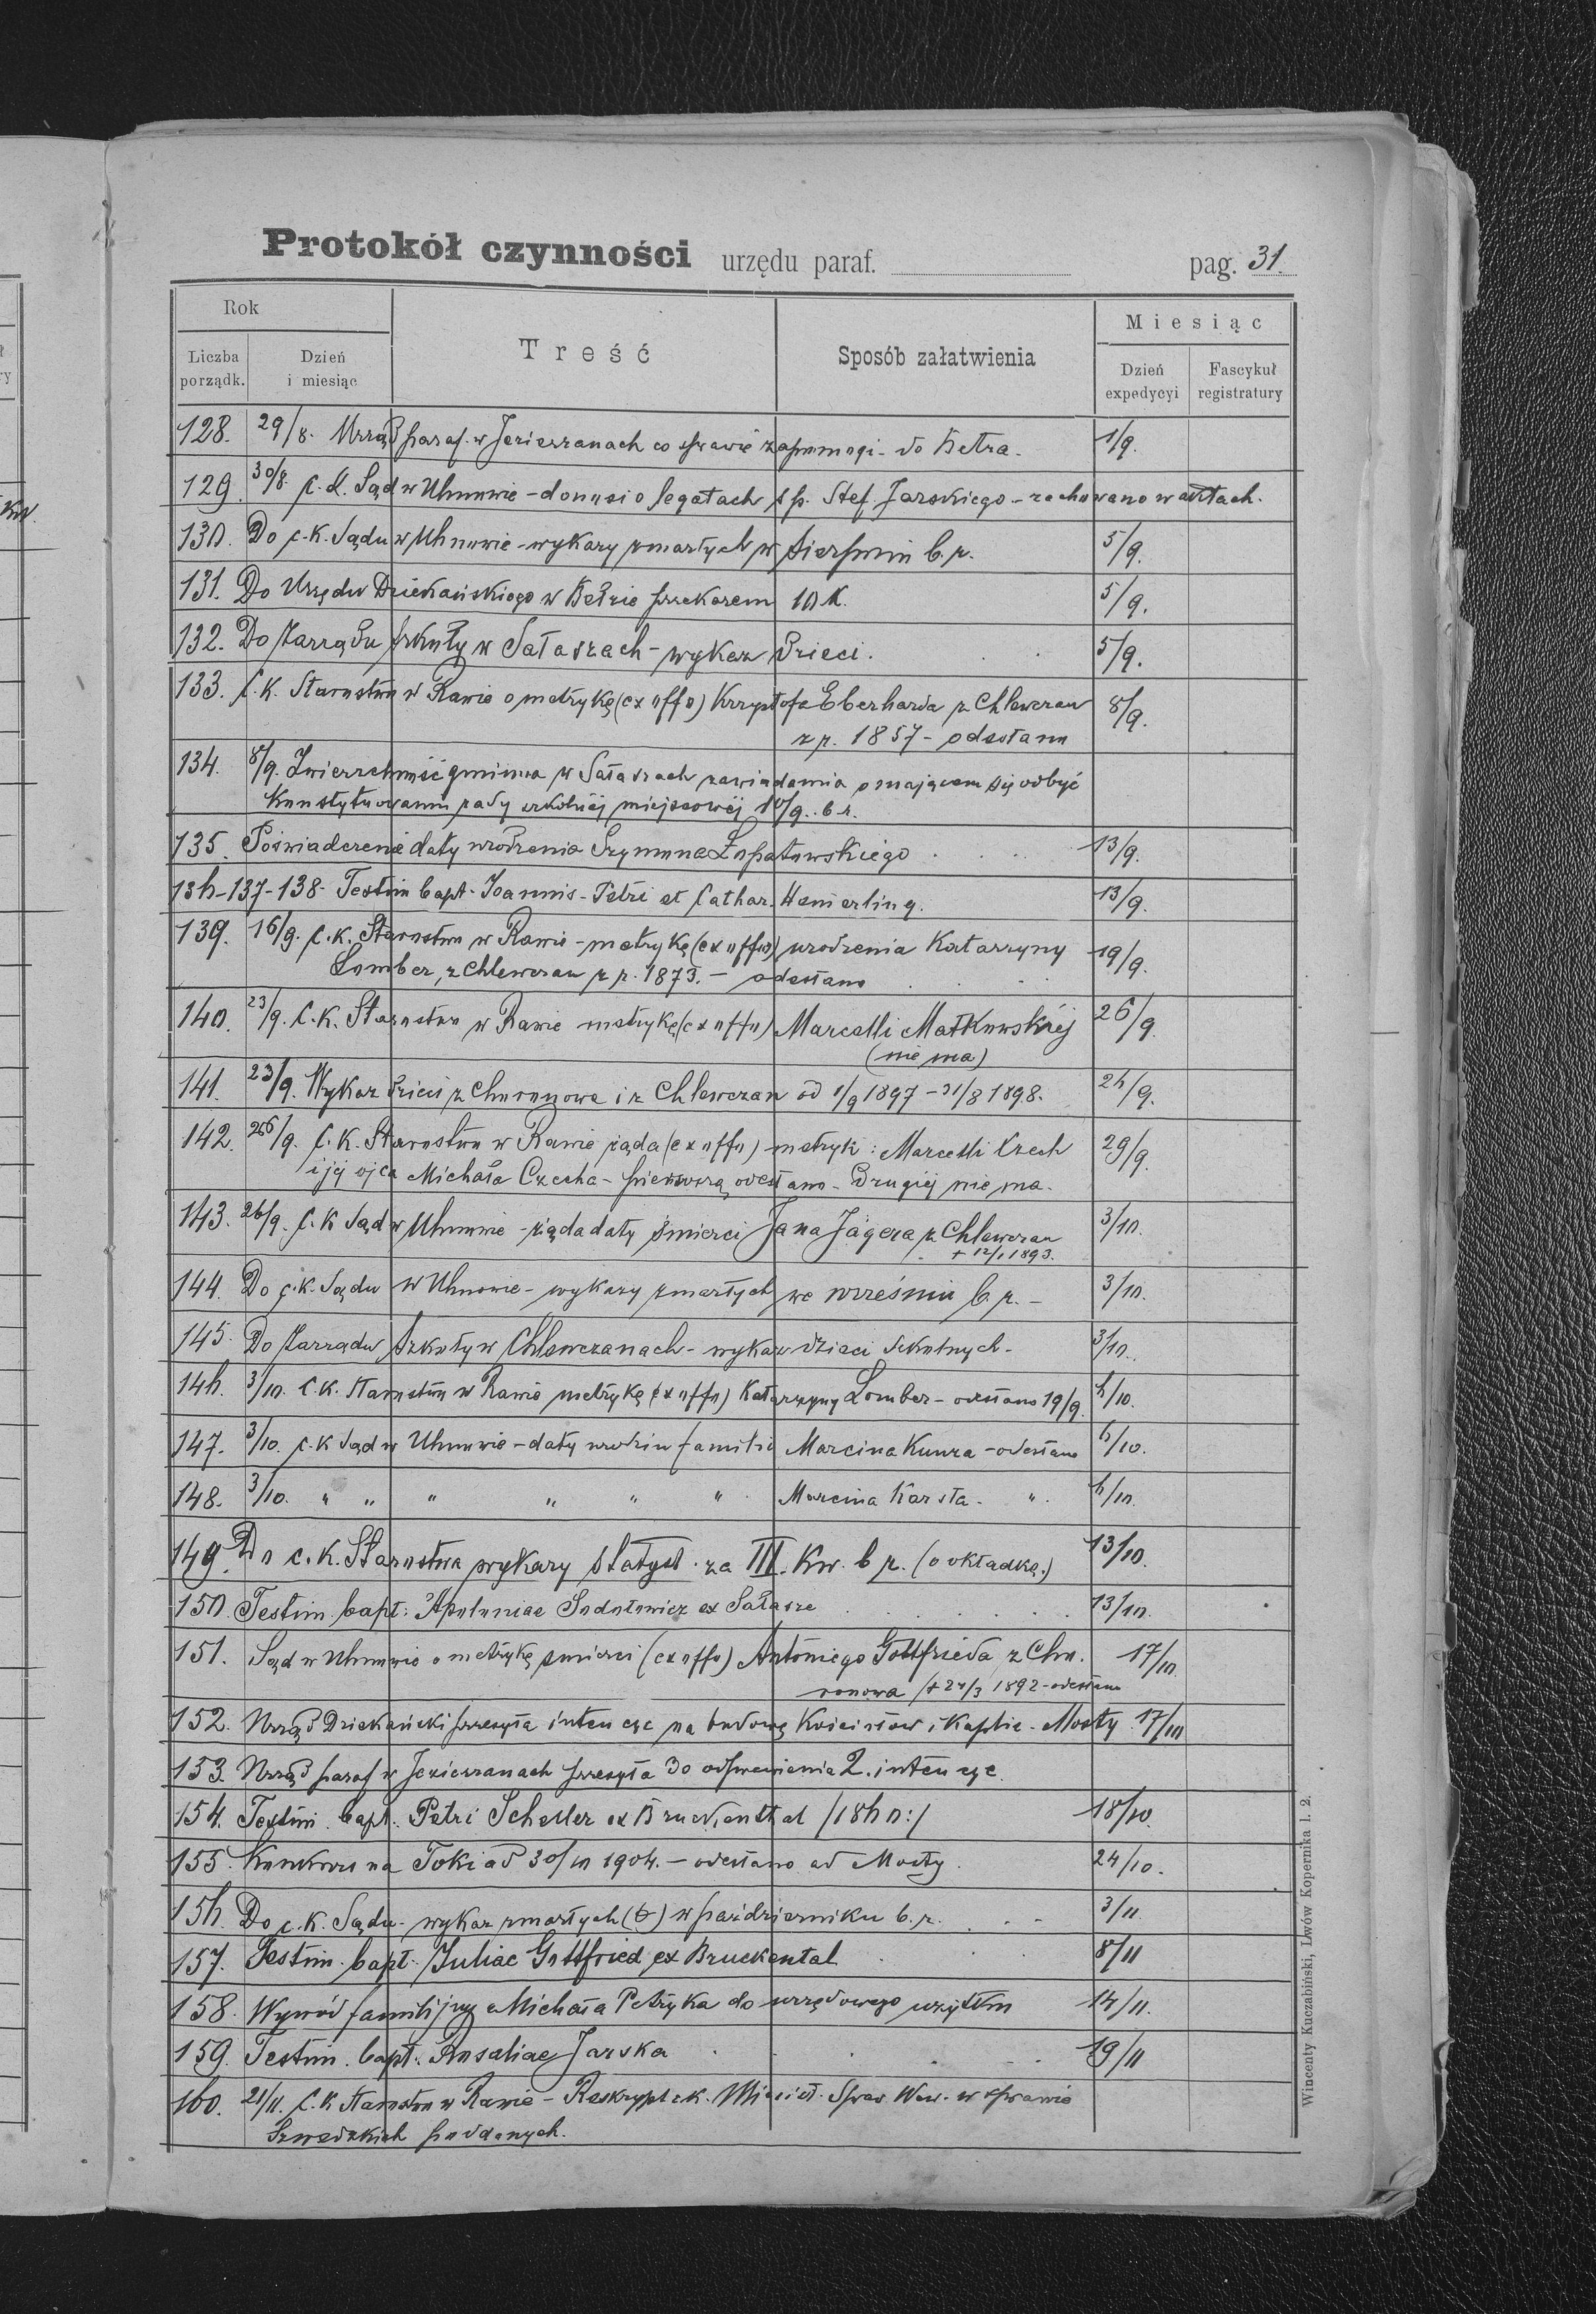 Protokół czynności urzędu paraf. pag. 31.
Rok
Liczba porządk.
Dzień i miesiąc
Treść
Sposób załatwienia
Miesiąc
Dzień expedycyi
Fascykuł registratury
128. 29/8. Urząd paraf. w Jezierzanach co sprawie zapomogi - do Bełza. 1/9.
129. 30/8. C. K. Sąd w Uhnowie - donosi o legatach ś p. Stef. Jarskiego - zachowano w aktach.
130. Do c. K. Sądu w Uhnowie - wykazy zmarłych w sierpniu b. r. 5/9.
131. Do Urzędu Dziekańskiego w Bełzie przekazem 10 K. 5/9.
132. Do Zarządu szkoły w Sałaszach - wykaz dzieci. 5/9.
133. C. K. Starostwo w Rawie o metrykę (ex offo) Krzysztofa Eberharda z Chlewczan 8/9.
z r. 1857 - odesłano
134. 8/9. Zwierzchność gminna w Sałaszach zawiadamia o mającem się odbyć
Konstytuowaniu rady szkolnéj miejscowéj 10/9. b r.
135. Poświadczenie daty urodzenia Szymona Łopatowskiego 13/9.
136-137-138- Testim bapt. Joannis - Petri et Cathar. Hemerling. 13/9.
139. 16/9. C. K. Starostwo w Rawie - metrykę (ex offo) urodzenia Katarzyny 19/9.
Lomber, z Chlewczan z r. 1873. - odesłano
140. 23/9. C. K. Starostwo w Rawie metrykę (ex offo) Marcelli Małkowskiéj 26/9.
(nie ma)
141. 23/9. Wykaz dzieci z Choronowa i z Chlewczan od 1/9 1897 - 31/8 1898. 26/9.
142. 26/9. C. K. Starostwo w Rawie żąda (ex offo) metryk: Marcelli Czech 29/9.
i jéj ojca Michała Czecha - pierwszą odesłano - Drugiéj nie ma.
143. 26/9. C. K Sąd w Uhnowie - żąda daty śmierci Jana Jägera z Chlewczan 3/10.
+ 12/1 1893.
144. Do c. K. Sądu w Uhnowie - wykazy zmarłych we wrześniu b. r. - 3/10.
145. Do Zarządu szkoły w Chlewczanach - wykaz dzieci szkolnych - 3/10.
146. 3/10. C. K. Starostwo w Rawie metrykę (ex offo) Katarzyny Lomber - odesłano 19/9. 6/10.
147. 3/10. C. K Sąd w Uhnowie - daty urodzin familii Marcina Kunza - odesłano 6/10.
148. 3/10. " " " " " " Marcina Karsta. " . 6/10.
149. Do c. K. Starostwa wykazy statyst. za III. Kw. b r. (o okładkę.) 13/10.
150. Testim. bapt: Apoloniae Sodołowicz ex Sałasze 13/10.
151. Sąd w Uhnowie o metrykę śmierci (ex offo) Antoniego Gottfrieda z Cho- 17/10
ronowa (+ 24/3 1892 - odesłano
152. Urząd Dziekański przesyła intencye na budowę Kościołów i Kaplic - Mosty 17/10
153. Urząd paraf w Jezierzanach przesyła do odprawienia 2. intencye
154. Testim. bapt. Petri Scheller ex Bruckenthal /1860:/ 18/10.
155. Konkurs na Toki ad 30/10 1904. - odesłano ad Mosty. 24/10.
156. Do c. K. Sądu - wykaz zmarłych w październiku b. r. 3/11.
157. Testim. bapt. Juliae Gottfried ex Bruckental 8/11
158. Wywód familijny Michała Petryka do urzędowego użytku 14/11.
159. Testim. bapt: Rosaliae Jarska 19/11
160. 21/11. C. K Starostwo w Rawie - Reskrypt c k. Minist. Spraw Wew. w sprawie
Szwedzkich poddanych.
Wincenty Kuczabiński, Lwów Kopernika l. 2.